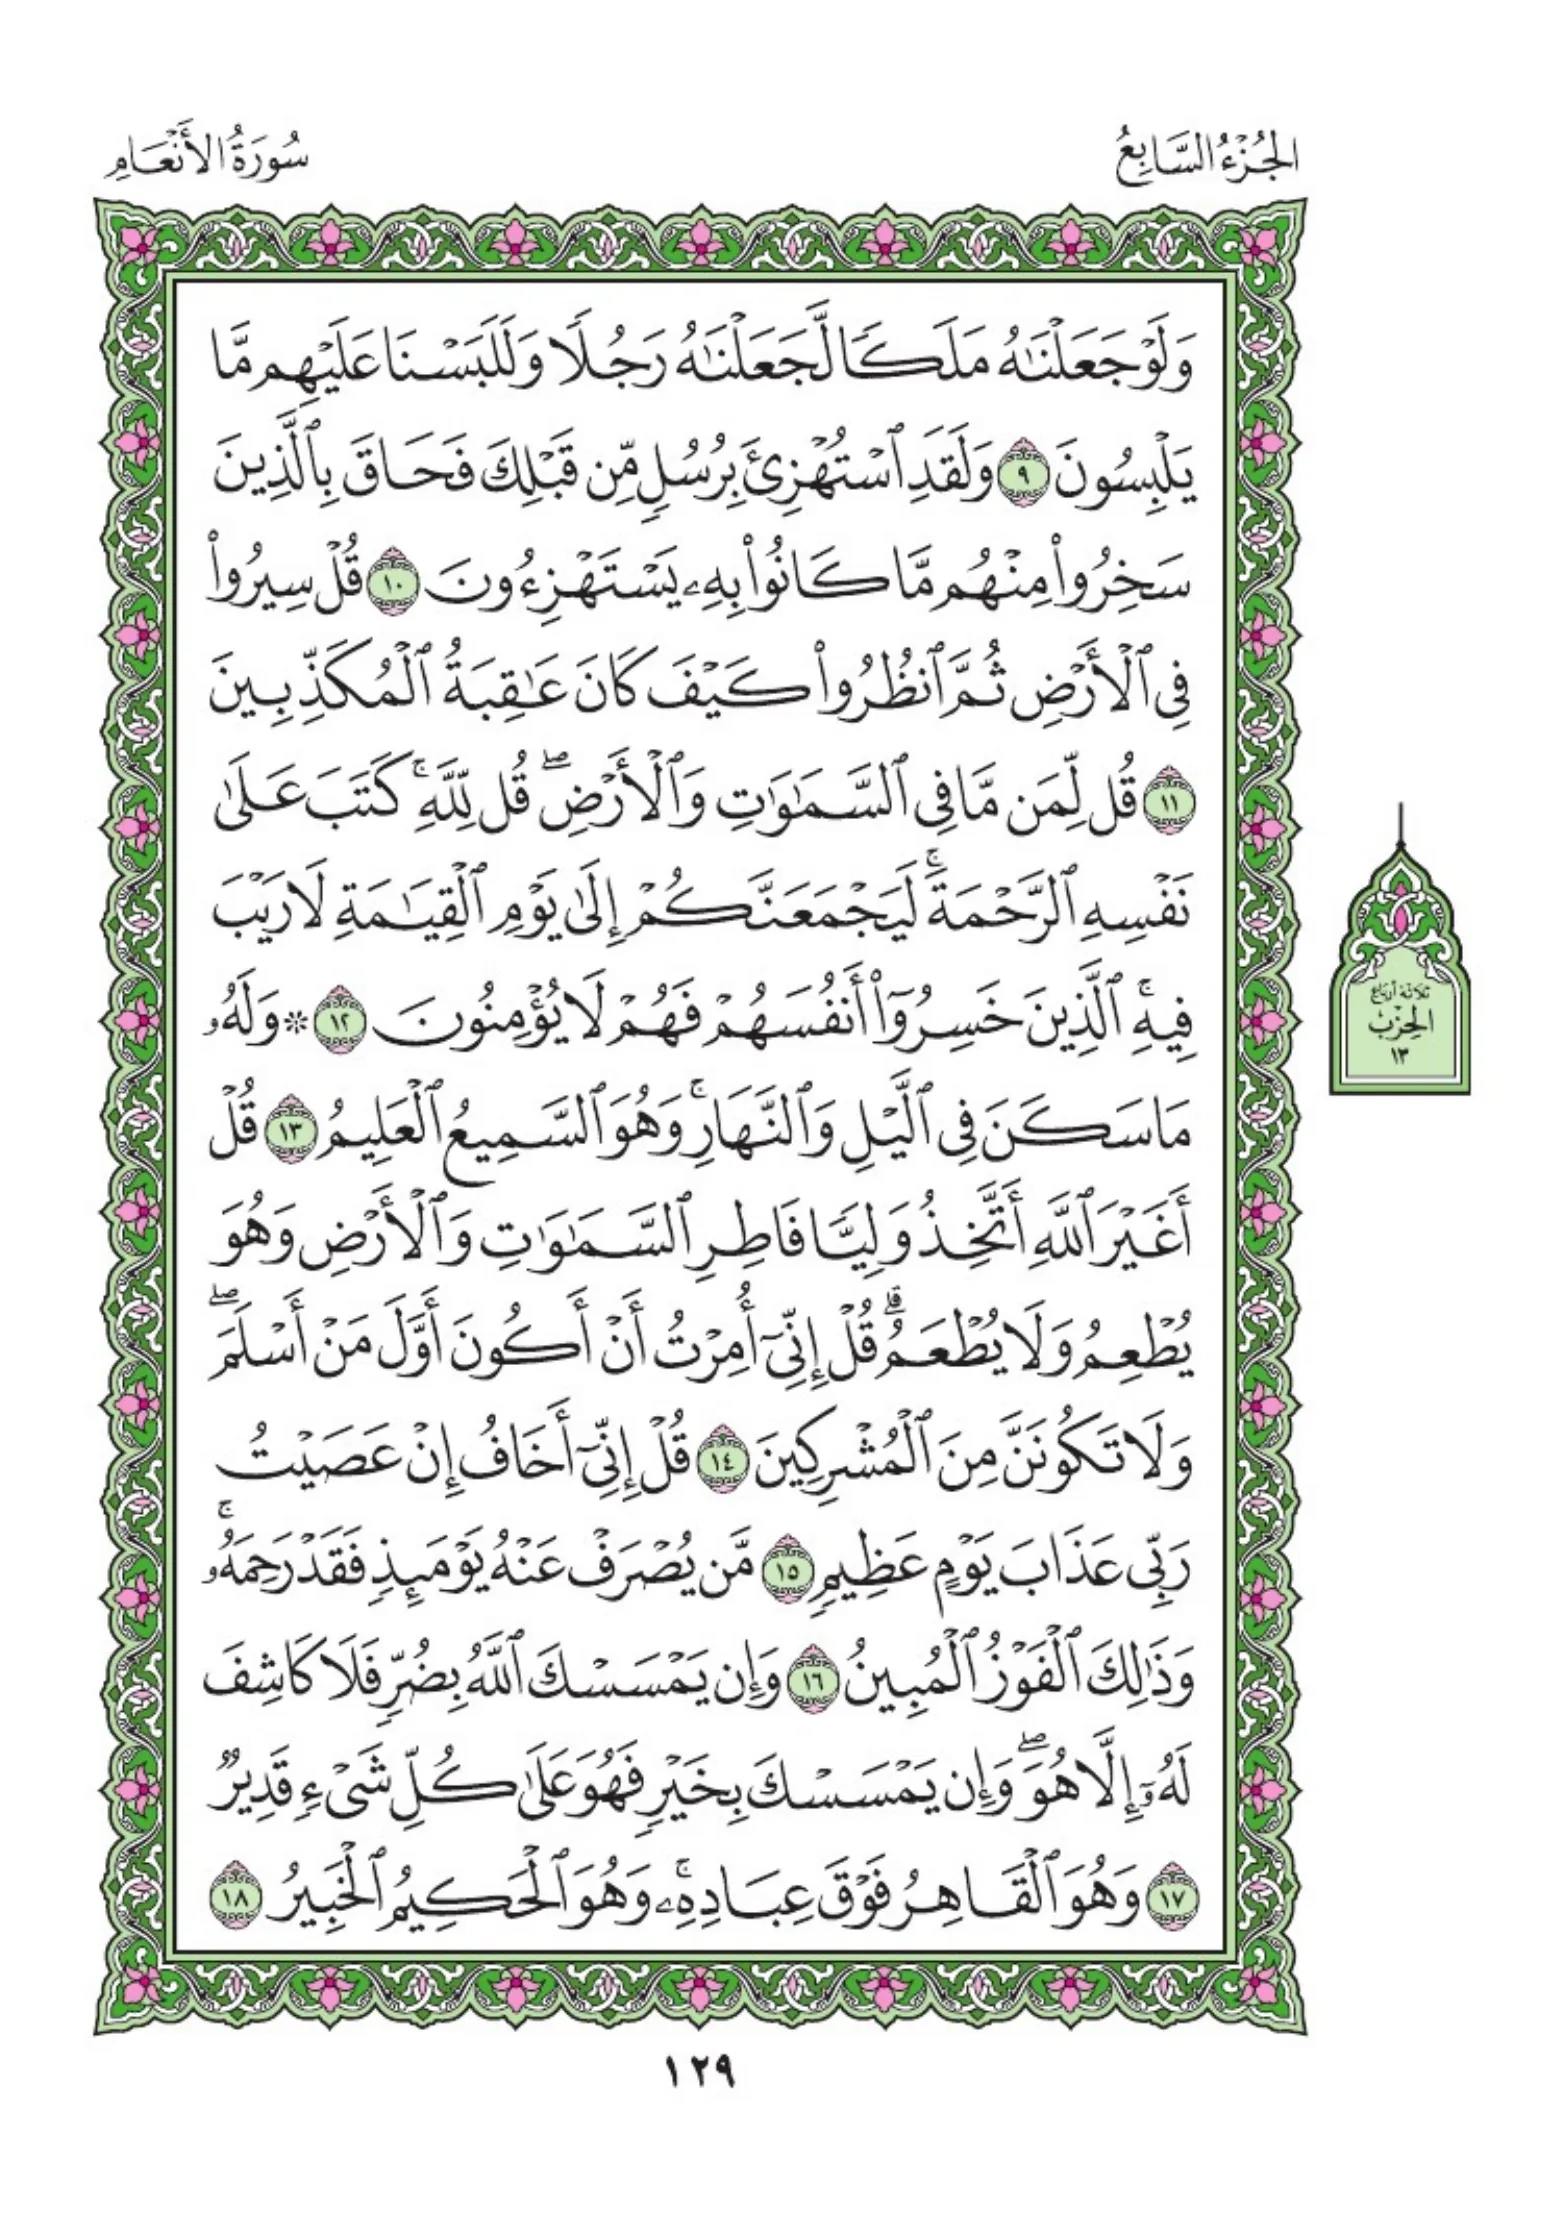 الجُزْءُ السَّابِعُ
سُورَةُ الأَنْعَامِ
وَلَوْ جَعَلْنَٰهُ مَلَكًا لَّجَعَلْنَٰهُ رَجُلًا وَلَلَبَسْنَا عَلَيْهِم مَّا
يَلْبِسُونَ ٩ وَلَقَدِ ٱسْتُهْزِئَ بِرُسُلٍ مِّن قَبْلِكَ فَحَاقَ بِٱلَّذِينَ
سَخِرُوا۟ مِنْهُم مَّا كَانُوا۟ بِهِۦ يَسْتَهْزِءُونَ ١٠ قُلْ سِيرُوا۟
فِى ٱلْأَرْضِ ثُمَّ ٱنظُرُوا۟ كَيْفَ كَانَ عَٰقِبَةُ ٱلْمُكَذِّبِينَ
١١ قُل لِّمَن مَّا فِى ٱلسَّمَٰوَٰتِ وَٱلْأَرْضِ ۖ قُل لِّلَّهِ ۚ كَتَبَ عَلَىٰ
نَفْسِهِ ٱلرَّحْمَةَ ۚ لَيَجْمَعَنَّكُمْ إِلَىٰ يَوْمِ ٱلْقِيَٰمَةِ لَا رَيْبَ
فِيهِ ۚ ٱلَّذِينَ خَسِرُوٓا۟ أَنفُسَهُمْ فَهُمْ لَا يُؤْمِنُونَ ١٢ * وَلَهُۥ
مَا سَكَنَ فِى ٱلَّيْلِ وَٱلنَّهَارِ ۚ وَهُوَ ٱلسَّمِيعُ ٱلْعَلِيمُ ١٣ قُلْ
أَغَيْرَ ٱللَّهِ أَتَّخِذُ وَلِيًّا فَاطِرِ ٱلسَّمَٰوَٰتِ وَٱلْأَرْضِ وَهُوَ
يُطْعِمُ وَلَا يُطْعَمُ ۗ قُلْ إِنِّىٓ أُمِرْتُ أَنْ أَكُونَ أَوَّلَ مَنْ أَسْلَمَ ۖ
وَلَا تَكُونَنَّ مِنَ ٱلْمُشْرِكِينَ ١٤ قُلْ إِنِّىٓ أَخَافُ إِنْ عَصَيْتُ
رَبِّى عَذَابَ يَوْمٍ عَظِيمٍ ١٥ مَّن يُصْرَفْ عَنْهُ يَوْمَئِذٍ فَقَدْ رَحِمَهُۥ ۚ
وَذَٰلِكَ ٱلْفَوْزُ ٱلْمُبِينُ ١٦ وَإِن يَمْسَسْكَ ٱللَّهُ بِضُرٍّ فَلَا كَاشِفَ
لَهُۥٓ إِلَّا هُوَ ۖ وَإِن يَمْسَسْكَ بِخَيْرٍ فَهُوَ عَلَىٰ كُلِّ شَىْءٍ قَدِيرٌ
١٧ وَهُوَ ٱلْقَاهِرُ فَوْقَ عِبَادِهِۦ ۚ وَهُوَ ٱلْحَكِيمُ ٱلْخَبِيرُ ١٨
ثلاثة أرباع
الحِزْب
١٣
١٢٩